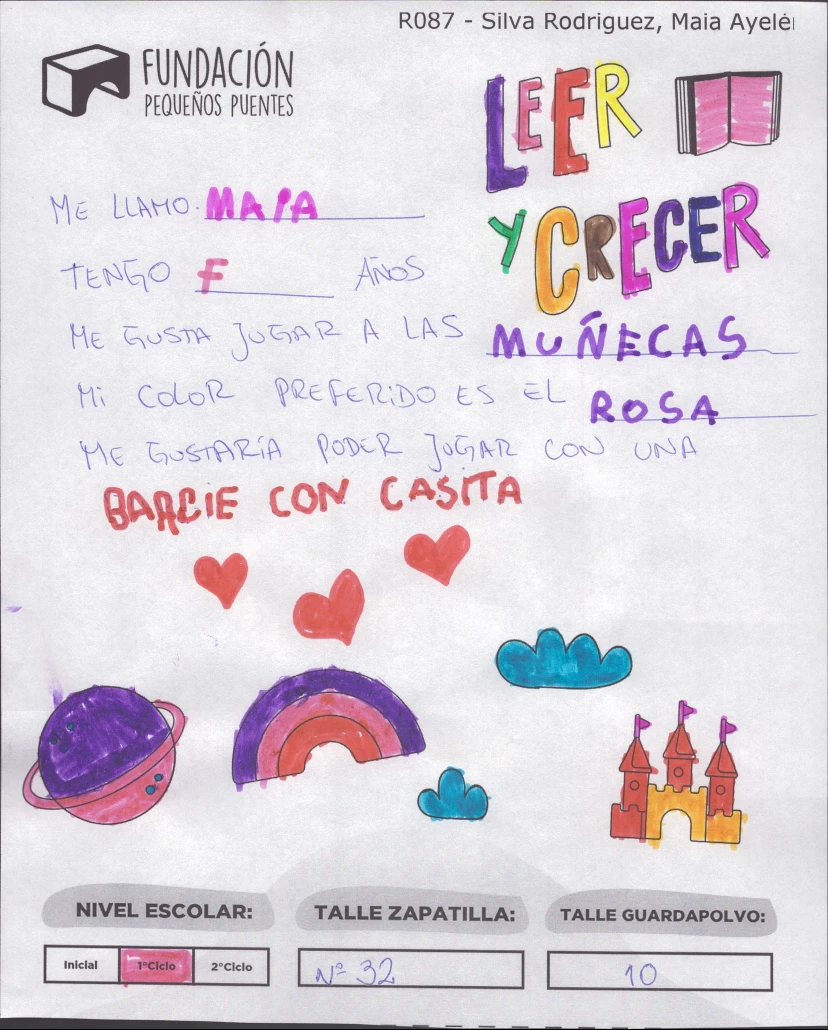 R087 - Silva Rodriguez, Maia Ayelé
FUNDACIÓN
PEQUEÑOS PUENTES
LEER
Y CRECER
ME LLAMO MAIA
TENGO F AÑOS
ME GUSTA JUGAR A LAS MUÑECAS
Mi COLOR PREFERiDO ES EL ROSA
ME GUSTARíA PODER JUGAR CON UNA
BARBIE CON CASITA
NIVEL ESCOLAR: TALLE ZAPATILLA: TALLE GUARDAPOLVO:
Inicial 1°Ciclo 2°Ciclo Nº 32 10